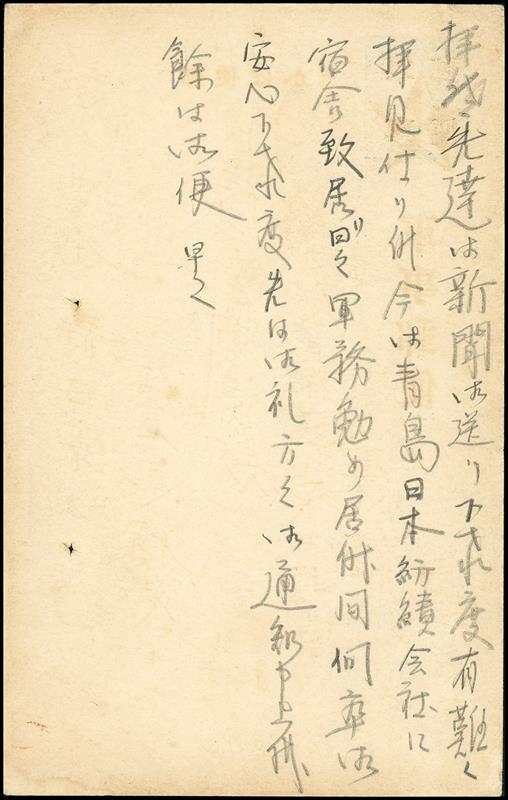 拝啓先達は新聞御送り下され度有難く
拝見仕り候今は青島日本紡績会社に
宿舎致居り日々軍務勉め居候間何卒御
安心下され度先は御礼方々御通知申上候
餘は後便 早々